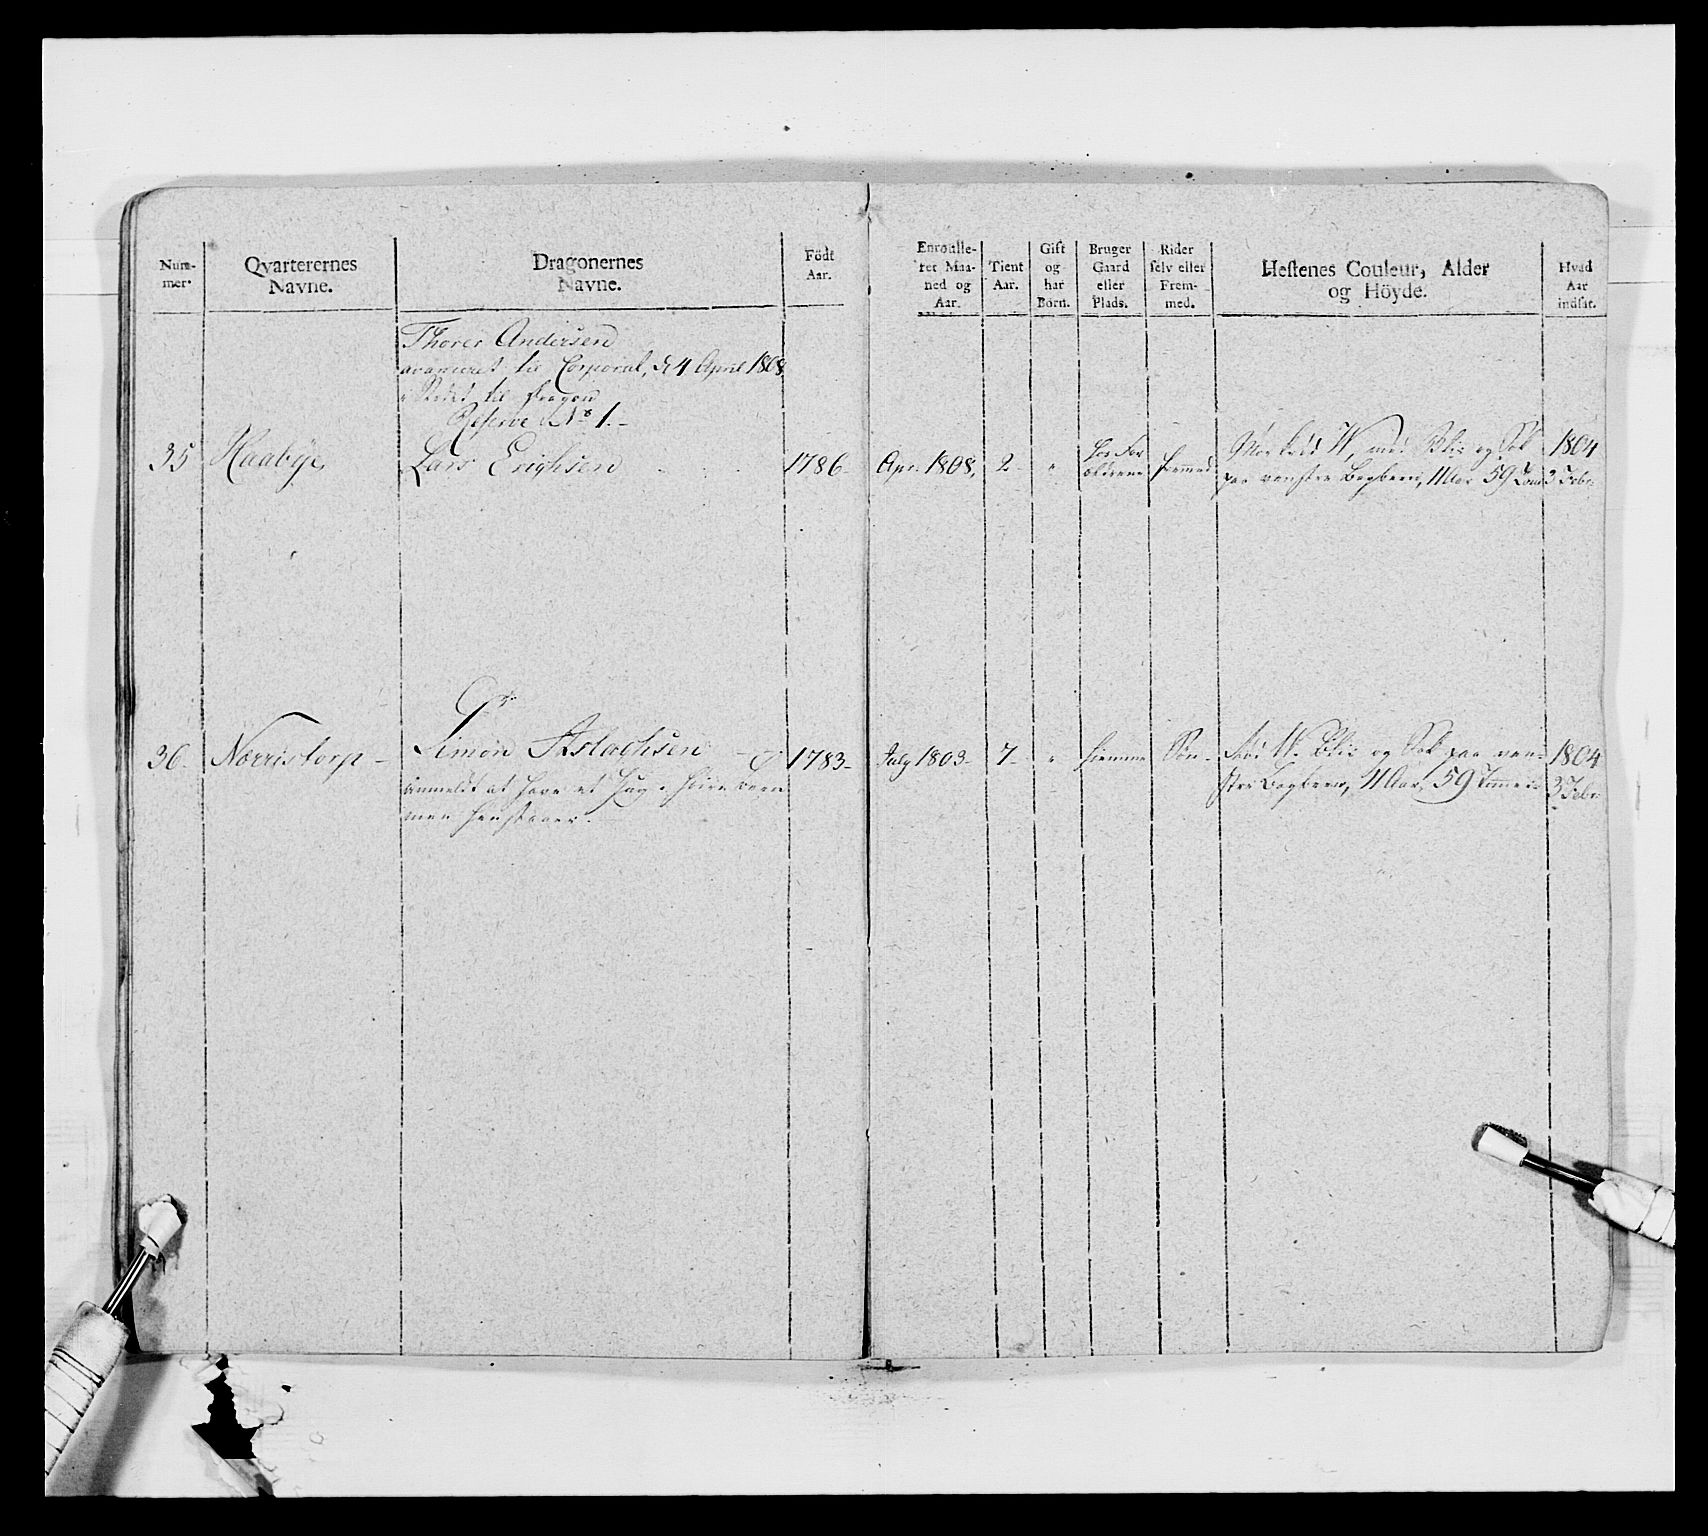 Num-
mer.
Qvarterernes
Navne.
Dragonernes
Navne.
Födt
Aar.
Enroulle-
ret Maa-
ned og
Aar.
Tient
Aar.
Gift
og
har
Börn.
Bruger
Gaard
eller
Plads.
Rider
selv eller
Frem-
med.
Hestenes Couleur, Alder
og Höyde.
Hvad
Aar
indsat.
Thorer Andersen
avanceret til Corporal, d 4 April 1808.
i Stedet til Dragon
Reserve No 1.-
35 Haabye, Lars Erichsen 1786- Apr. 1808, 2- " hos For
ældrene fremmed W, med Blis og Sok 1804
paa venstre Bagbeen, 11 Aar 59 Tom 3 Febr.
36. Norristorp- Simon Aslachsen 1783- July 1803- 7- " hiemme Søn- Blis og Sok paa ven- 1804
anmeldt at have et
stre Bagbeen, 11 Aar, 59 Tommer 3 Febr
men